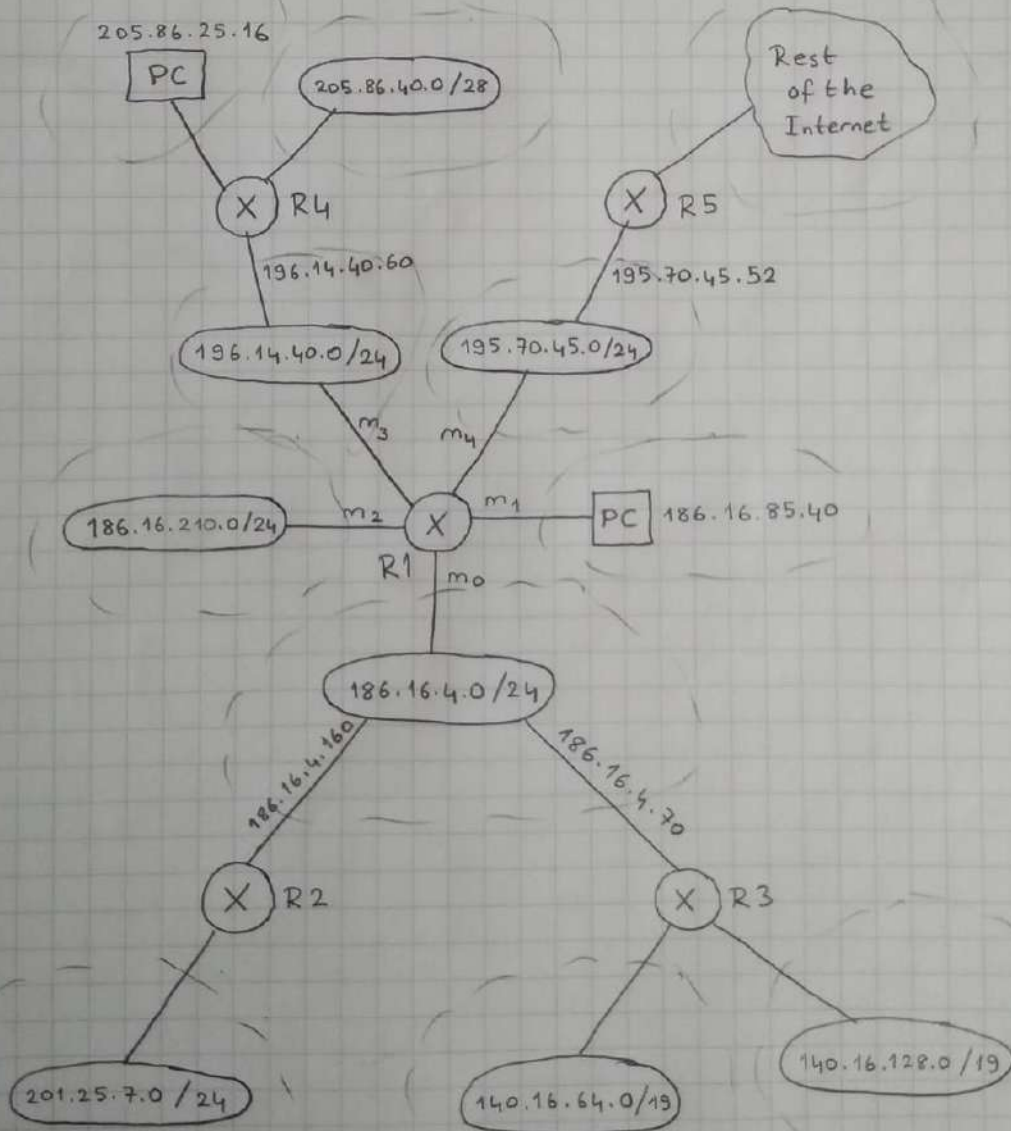 205.86.25.16
PC
205.86.40.0/28
Rest
of the
Internet
X R4
X R5
196.14.40.60
195.70.45.52
196.14.40.0/24
195.70.45.0/24
m3
m4
186.16.210.0/24
m2
X
m1
PC
186.16.85.40
R1
m0
186.16.4.0/24
186.16.4.160
186.16.4.70
X R2
X R3
201.25.7.0/24
140.16.64.0/19
140.16.128.0/19